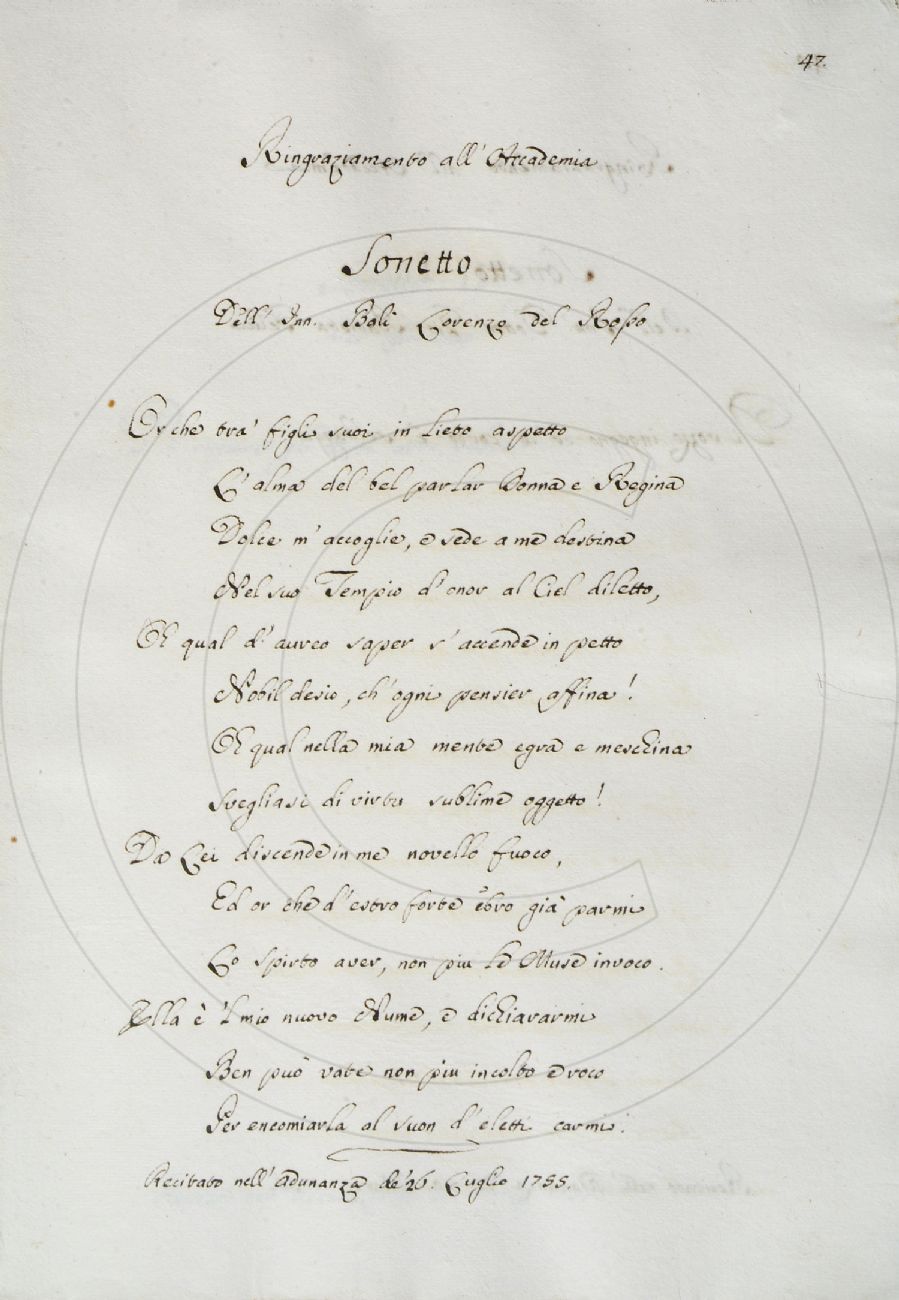 47.
Ringraziamento all' Accademia
Sonetto
Dell' Inn. Balì Lorenzo del Rosso
Or che tra' figli suoi in lieto aspetto
L' alma del bel parlar Donna e Regina
Dolce m' accoglie, e sede a me destina
Nel suo Tempio d' onor al Ciel diletto,
Oh qual d' aureo saper s' accende in petto
Nobil desio, ch' ogni pensier affina!
Oh qual nella mia mente egra e meschina
Svegliasi di virtu sublime oggetto!
Da Lei discende in me novello fuoco,
Ed or che d' estro forte ebro già parmi
Lo spirto aver, non piu le Muse invoco.
Ella è 'l mio nuovo Nume, e dichiararmi
Ben può vate non più incolto e roco
Per encomiarla al suon d' eletti carmi.
Recitato nell' Adunanza de' 26. Luglio 1755.